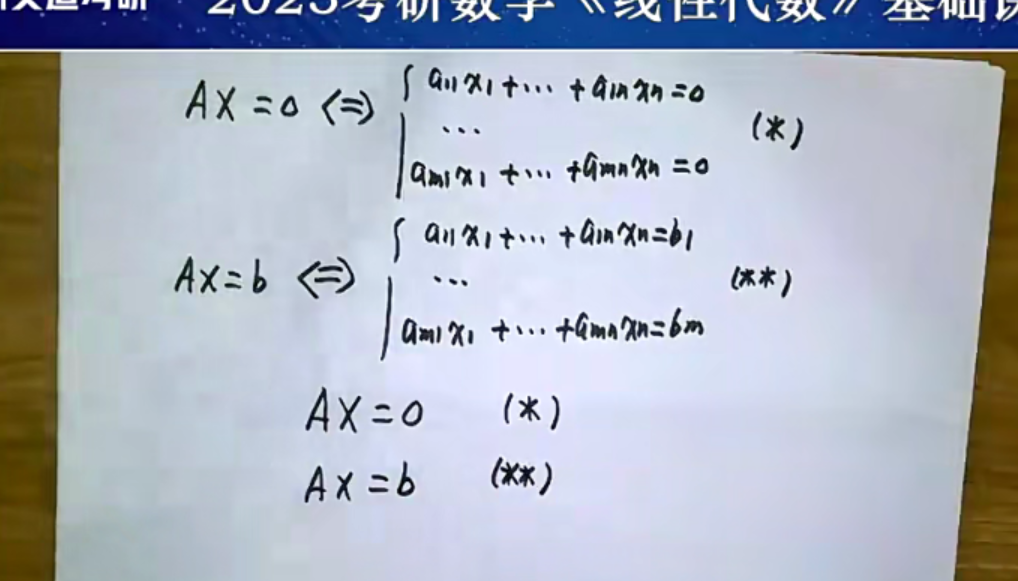 2025考研数学《线性代数》基础课
AX=0 <=> { a₁₁x₁+…+a₁ₙxₙ=0
… (*)
aₘ₁x₁+…+aₘₙxₙ=0
AX=b <=> { a₁₁x₁+…+a₁ₙxₙ=b₁
… (**)
aₘ₁x₁+…+aₘₙxₙ=bₘ
AX=0 (*)
AX=b (**)